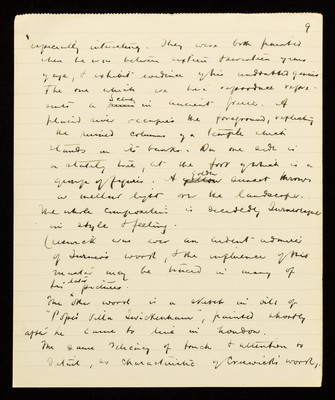 9
especially interesting. They were both painted
when he was between sixteen & seventeen years
of age, & exhibit evidence of his undoubted genius
The one which we here reproduce repre-
sents a Scene in ancient Greece. A
placid river occupies the foreground, reflecting
the ruined columns of a temple which
stands on its banks. On one side is
a stately tree, at the foot of which is a
group of figures. A yellow golden sunset throws
a mellow light over the landscape.
The whole composition is decidedly Turneresque
in style & feeling.
Creswick was ever an ardent admirer
of Turner's work, & the influence of this
master may be traced in many of
his later pictures.
The other work is a sketch in oils of
"Pope's Villa Twickenham", painted shortly
after he came to live in London.
The same delicacy of touch & attention to
detail, so characteristic of Creswick's work,